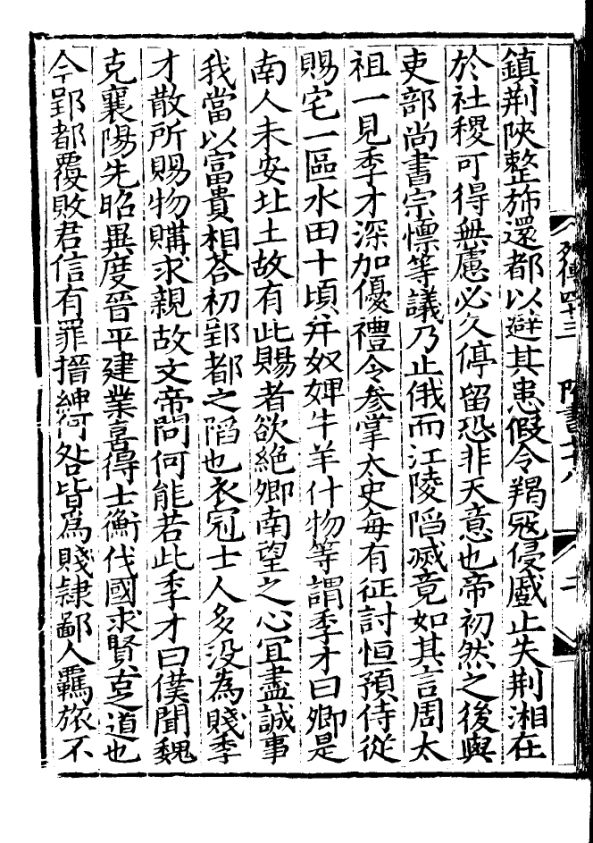 鎮荆陝整斾還都以避其患假令羯冦侵蹙止失荆湘在
於社稷可得無慮必久停留恐非天意也帝初然之後與
吏部尚書宗懍等議乃止俄而江陵陷滅竟如其言周太
祖一見季才深加優禮令叅掌太史每有征討恒預侍從
賜宅一區水田十頃并奴婢牛羊什物等謂季才曰卿是
南人未安北土故有此賜者欲絶卿南望之心冝盡誠事
我當以富貴相荅初郢都之陷也衣冠士人多没為賤季
才散所賜物購求親故文帝問何能若此季才曰僕聞魏
克襄陽先昭異度晉平建業喜得士衡伐國求賢古之道也
今郢都覆敗君信有罪搢紳何咎皆爲賤隷鄙人羈旅不
列傳四十三 隋書七十八 二